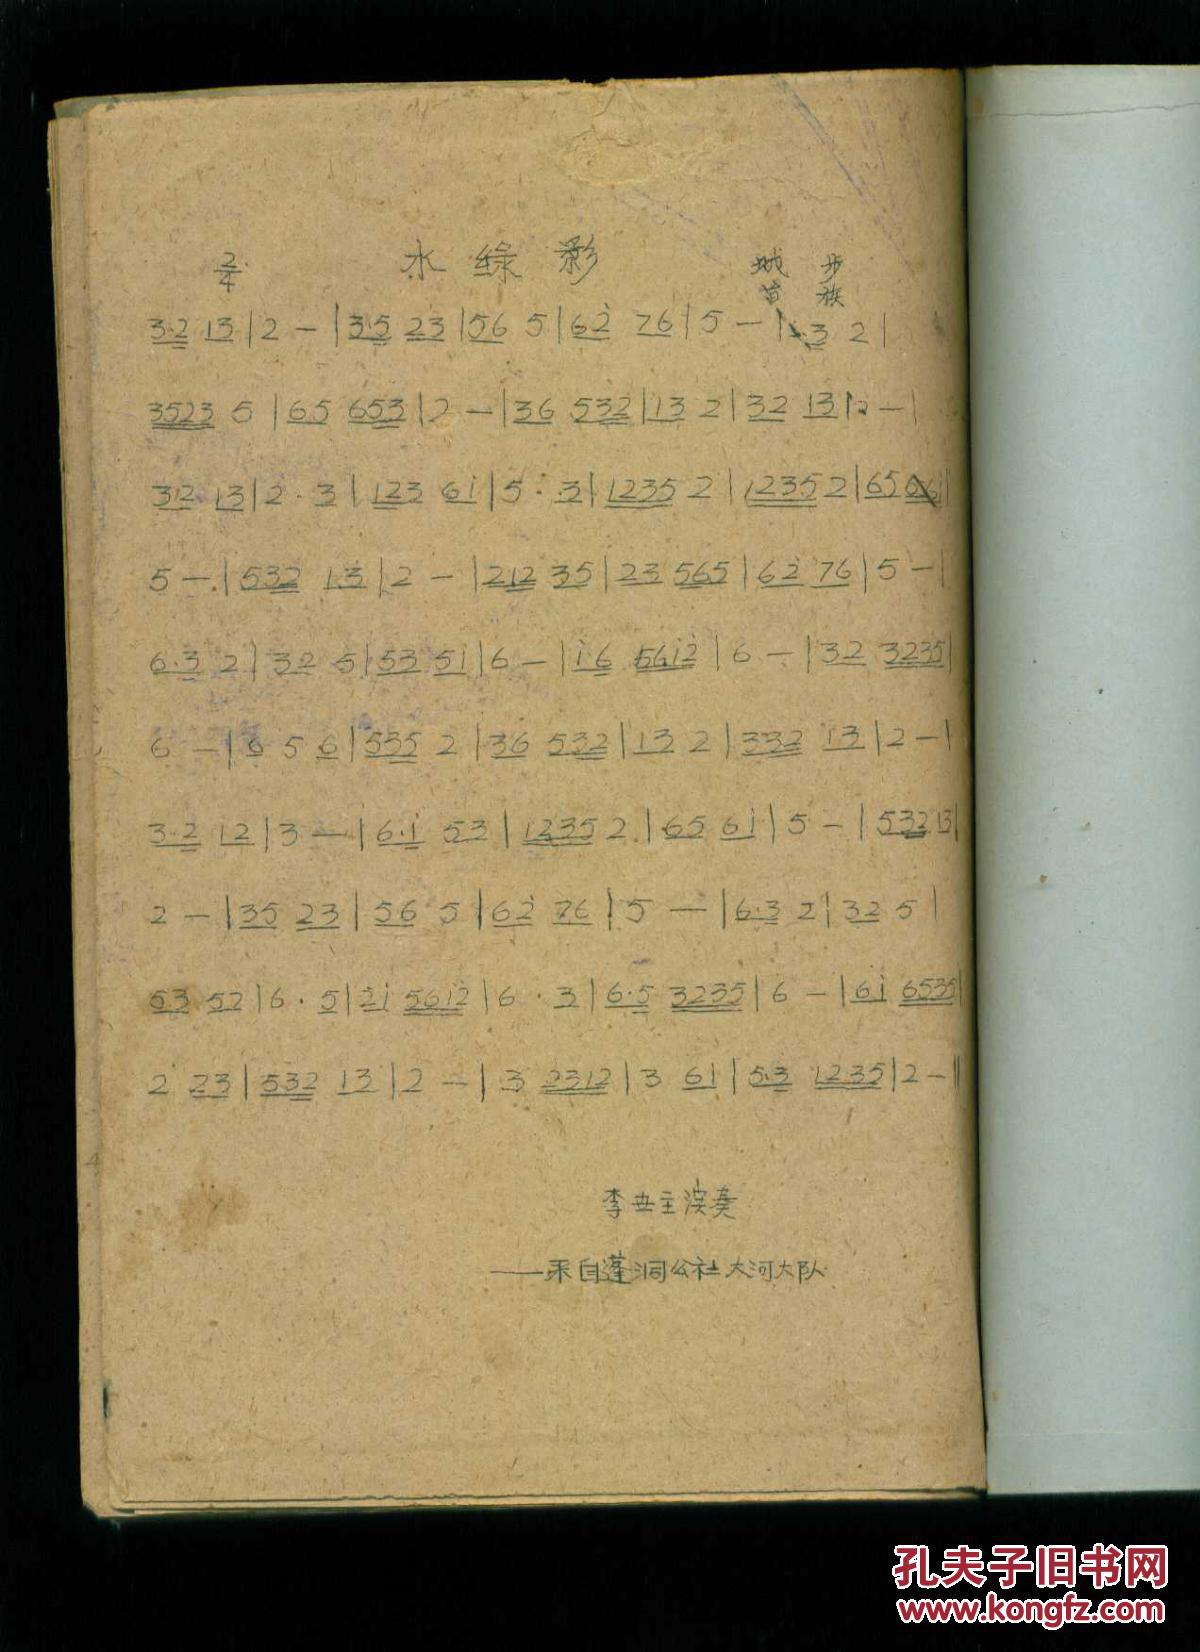 2/4 水绿影 城步
苗族
3·2 13 | 2 — | 3·5 23 | 56 5 | 62̇ 76 | 5 — | ·3 2 |
3523 5 | 65 653 | 2 — | 36 532 | 13 2 | 32 13 | 2 — |
32 13 | 2 · 3 | 123 61̇ | 5 · 3 | 1235 2 | 1235 2 | 65
5 — | 532 13 | 2 — | 212 35 | 23 565 | 62̇ 76 | 5 — |
6·3 2 | 32 5 | 53 51̇ | 6 — | 1̇6 561̇2̇ | 6 — | 32 3235 |
6 — | 6 5 6 | 535 2 | 36 532 | 13 2 | 332 13 | 2 — |
3·2 12 | 3 — | 6·1̇ 53 | 1235 2 | 65 61̇ | 5 — | 532 13 |
2 — | 35 23 | 56 5 | 62̇ 76 | 5 — | 6·3 2 | 32 5 |
53 52 | 6 · 5 | 2̇1̇ 561̇2̇ | 6 · 3 | 6·5 3235 | 6 — | 61̇ 6535 |
2 23 | 532 13 | 2 — | 3 2312 | 3 61 | 5·3 1235 | 2 — ‖
李世主演奏
——采自蓬洞公社大河大队
孔夫子旧书网
www.kongfz.com